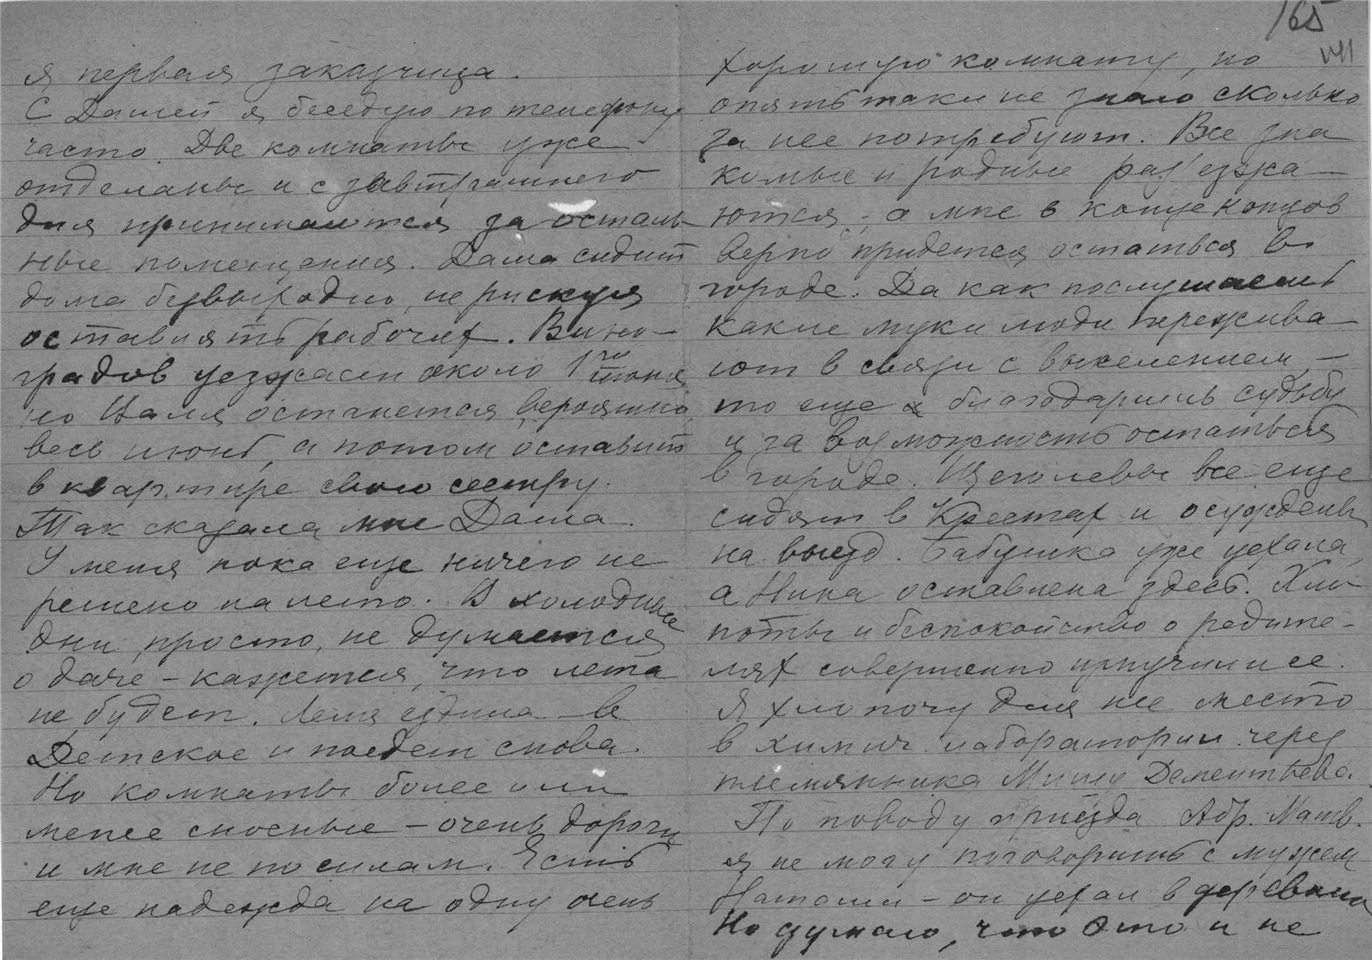 165
VII
я первая заказчица.
С Дашей я беседую по телефону
часто. Две комнаты уже
отделаны и с завтрашнего
дня принимаются за осталь-
ные помещения. Даша сидит
дома безвыходно, не рискуя
оставлять рабочих. Вино-
градов уезжает около 1го июня,
но Наля останется, вероятно,
весь июнь, а потом оставит
в квартире свою сестру.
Так сказала мне Даша.
У меня пока еще ничего не
решено на лето. В холодные
дни, просто, не думается
о даче – кажется, что лета
не будет. Леля ездила в
Детское и поедет снова.
Но комнаты более или
менее сносные – очень дороги
и мне не по силам. Есть
еще надежда на одну очень
хорошую комнату, но
опять таки не знаю сколько
за нее потребуют. Все зна
комые и родные раз'езжа–
ются, а мне в конце концов
верно придется остаться в
городе. Да как послушаешь
какие муки люди пережива–
ют в связи с выселением –
то еще благодаришь судьбу
и за возможность остаться
в городе. Щеголевы все еще
сидят в Крестах и осуждены
на выезд. Бабушка уже уехала,
а Нина оставлена здесь. Хло–
поты и беспокойство о родите–
лях совершенно измучили ее.
Я хлопочу для нее место
в химич. лаборатории через
племянника Мишу Дементьева.
По поводу приезда Абр. Матв.
я не могу поговорить с мужем
Натальи – он уехал в деревню
Но думаю, что это и не